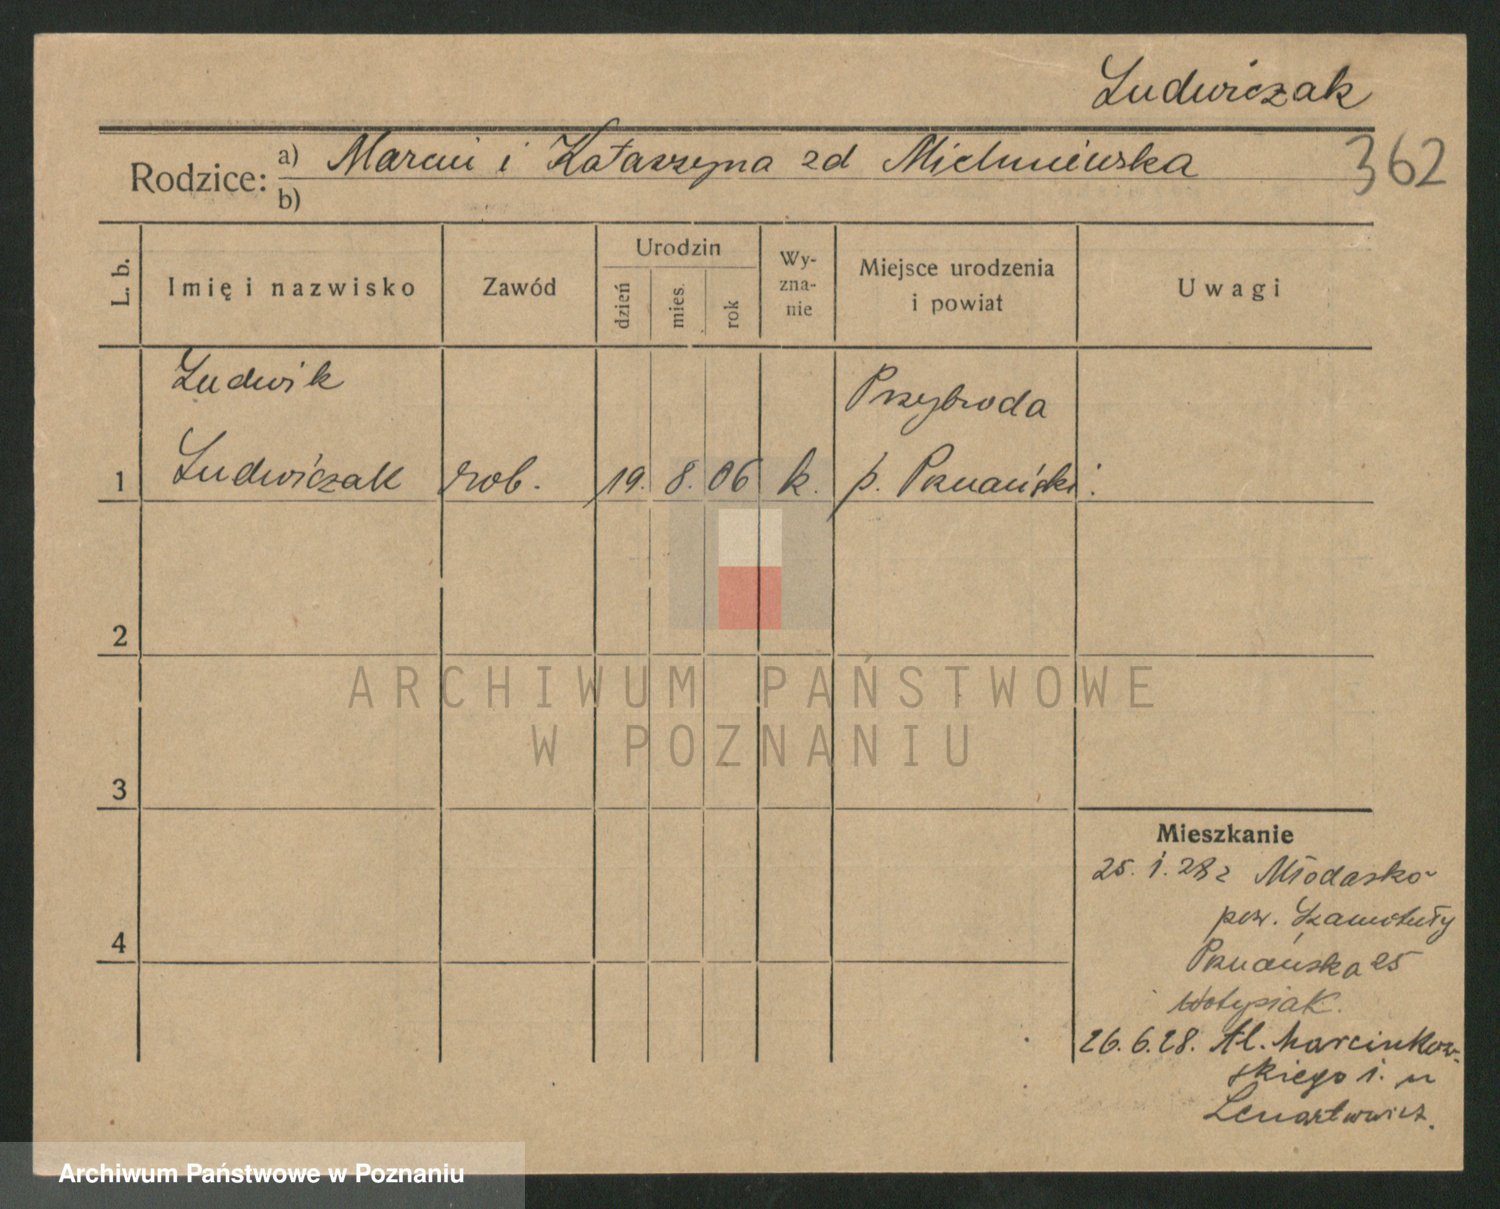 Ludwiczak
362
Rodzice: a) Marcin i Katarzyna zd
b)
L. b. Imię i nazwisko Zawód Urodzin dzień mies. rok Wy-zna-nie Miejsce urodzenia i powiat Uwagi
Ludwik Przybroda
1 Ludwiczak rob. 19. 8. 06 k. p. Poznański.
2
3
4
Mieszkanie
25. 1. 28 z Młodasko
pow. Szamotuły
Poznańska 25
26. 6. 28. Al. Marcinkow-
skiego 1. u
Lenartowicz.
ARCHIWUM PAŃSTWOWE
W POZNANIU
Archiwum Państwowe w Poznaniu